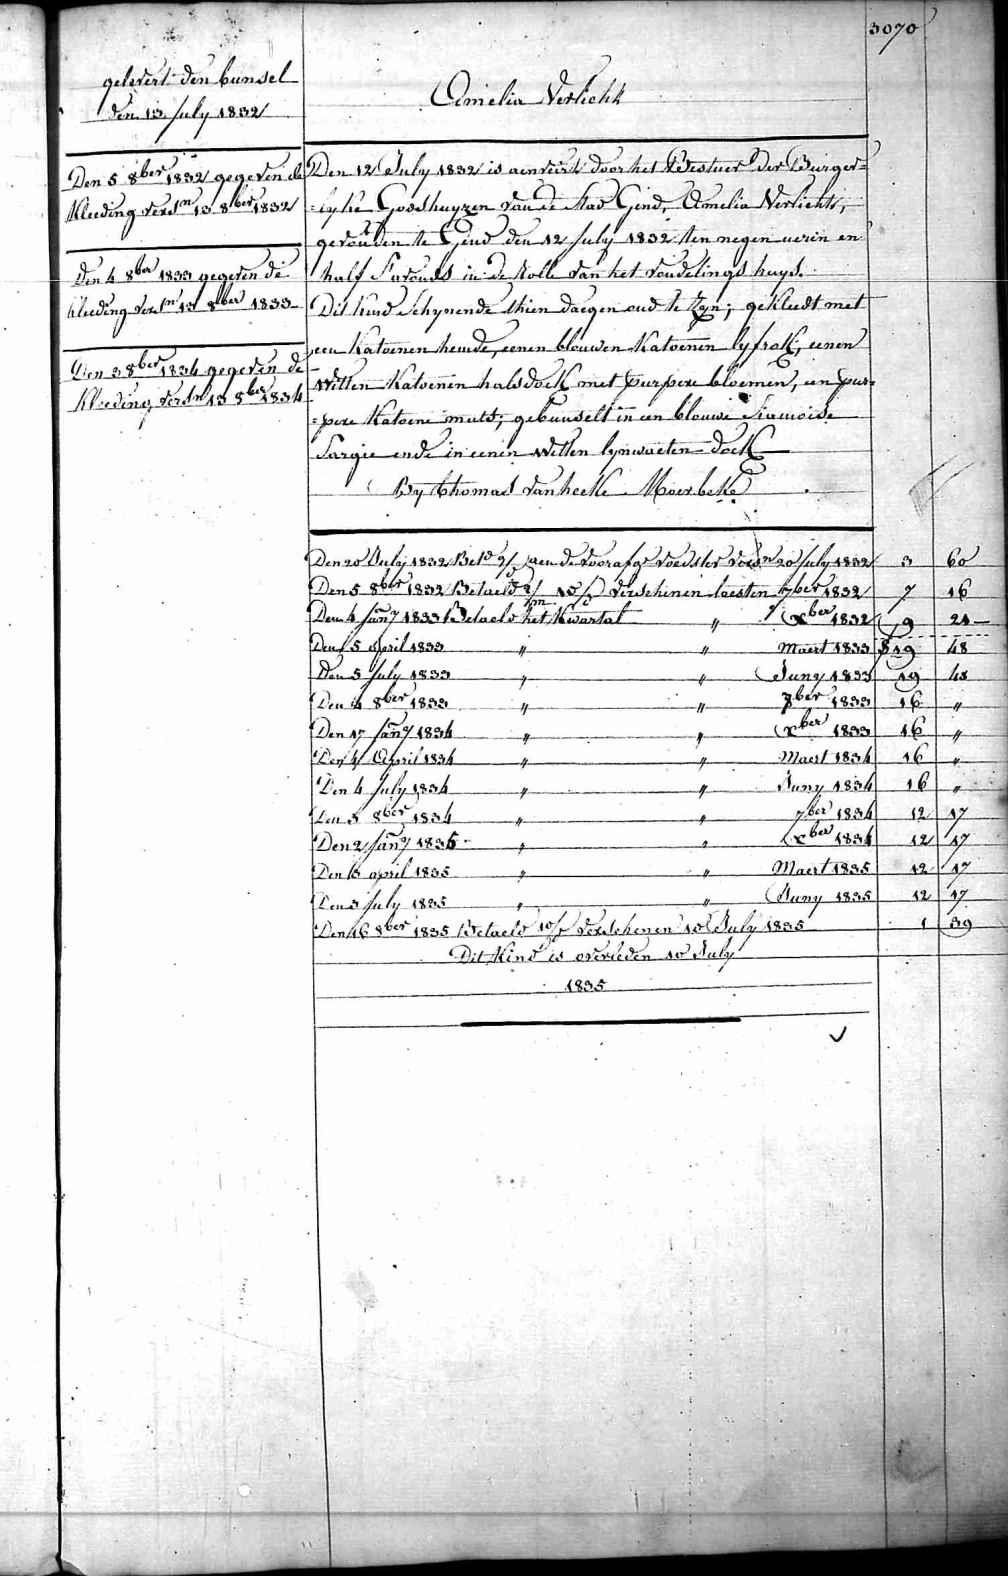 3070
gelevert den bunsel
den 13 July 1832
Amelia Verlichk
Den 5 8ber 1832 gegeven de
Kleeding versn 13 8ber 1832
Den 4 8ber 1833 gegeven de
kleeding versn 13 8ber 1833
Den 3 8ber 1834 gegeven de
Kleeding, versn 13 8ber 1834
Den 12 July 1832 is aenveirt door het Bestuer der Burger=
=lyke Godshuyzen van de Stad Gend, Amelia Verlichk,
gevonden te Gend den 12 July 1832 ten negen ueren en
half s'avonds in de Rolle van het vondelings huys.
Dit kind schynende thien daegen oud te zyn; gekleedt met
een katoenen hemde, eenen blauwen katoenen lyfrok, eenen
witten katoenen halsdoek met purpere bloemen, een pur=
=pere katoene muts; gebunselt in een blauwe siamoise
sargie ende in eenen witten lynwaeten doek
By Thomas Vanhecke Moerbeke
Den 20 July 1832 Betd aen de voorafge voedster versn 20 July 1832 3 60
Den 5 8ber 1832 Betaeld verschenen laesten 7ber 1832 7 16
Den 4 Jany 1833 Betaeld het Kwartal " " Xber 1832 9 21
Den 5 april 1833 " " Maert 1833 19 48
Den 5 July 1833 " " Juny 1833 19 48
Den 4 8ber 1833 " " 7ber 1833 16 "
Den 17 Jany 1834 " " Xber 1833 16 "
Den 4 April 1834 " " Maert 1834 16 "
Den 4 July 1834 " " Juny 1834 16 "
Den 3 8ber 1834 " " 7ber 1834 12 17
Den 2 Jany 1835 " " Xber 1834 12 17
Den 13 april 1835 " " Maert 1835 12 17
Den 3 July 1835 " " Juny 1835 12 17
Den 16 8ber 1835 Betaeld 10/ verschenen 10 July 1835 1 39
Dit Kind is overleden 10 July
1835